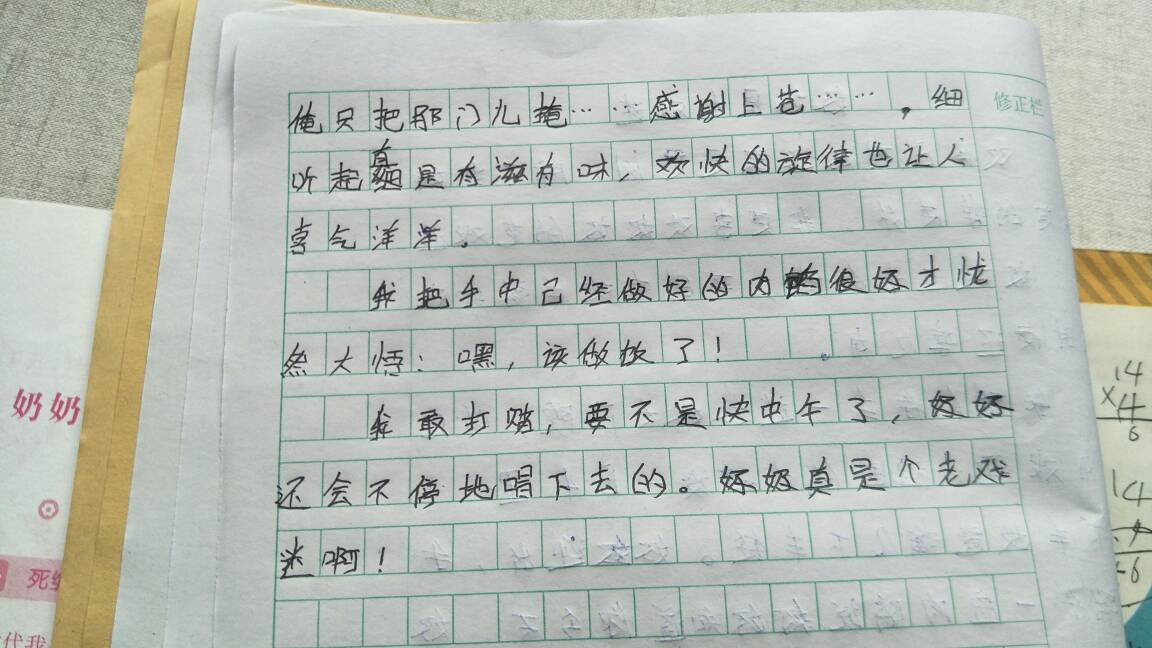 俺只把那门儿掩……感谢上苍……，细
听起真是有滋有味，欢快的旋律也让人
喜气洋洋。
我把手中已经做好的内 很奶才恍
然大悟：嘿，该做饭了！
我敢打赌，要不是快中午了，奶奶
还会不停地唱下去的。奶奶真是个老戏
迷啊！
修正栏
奶奶
死
代我
14
×4
6
14